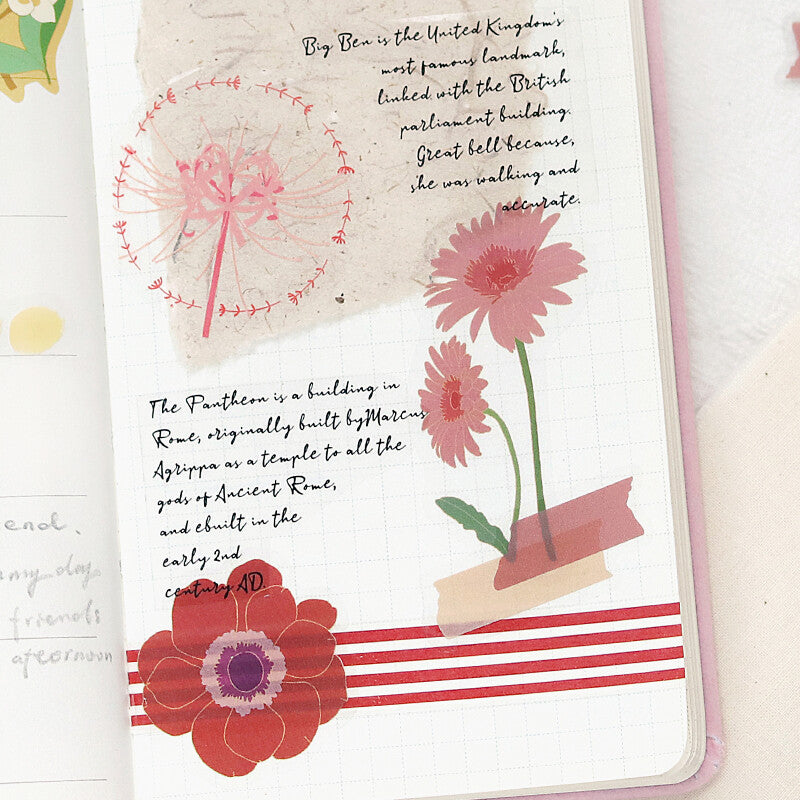 Big Ben is the United Kingdom's
most famous landmark,
linked with the British
parliament building.
Great bell because,
she was walking and
accurate.
The Pantheon is a building in
Rome, originally built byMarcus
Agrippa as a temple to all the
gods of Ancient Rome,
and ebuilt in the
early 2nd
century AD.
end.
my days
friends
afeornoon